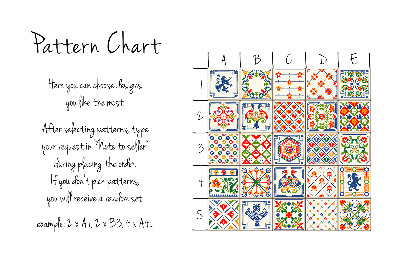 Pattern Chart
Here you can choose designs
you like the most.
After selecting patterns, type
your request in "Note to seller"
during placing the order.
If you don't pick patterns,
you will receive a random set.
example: 2 x A1, 2 x B3, 4 x A4...
A B C D E
1
2
3
4
5